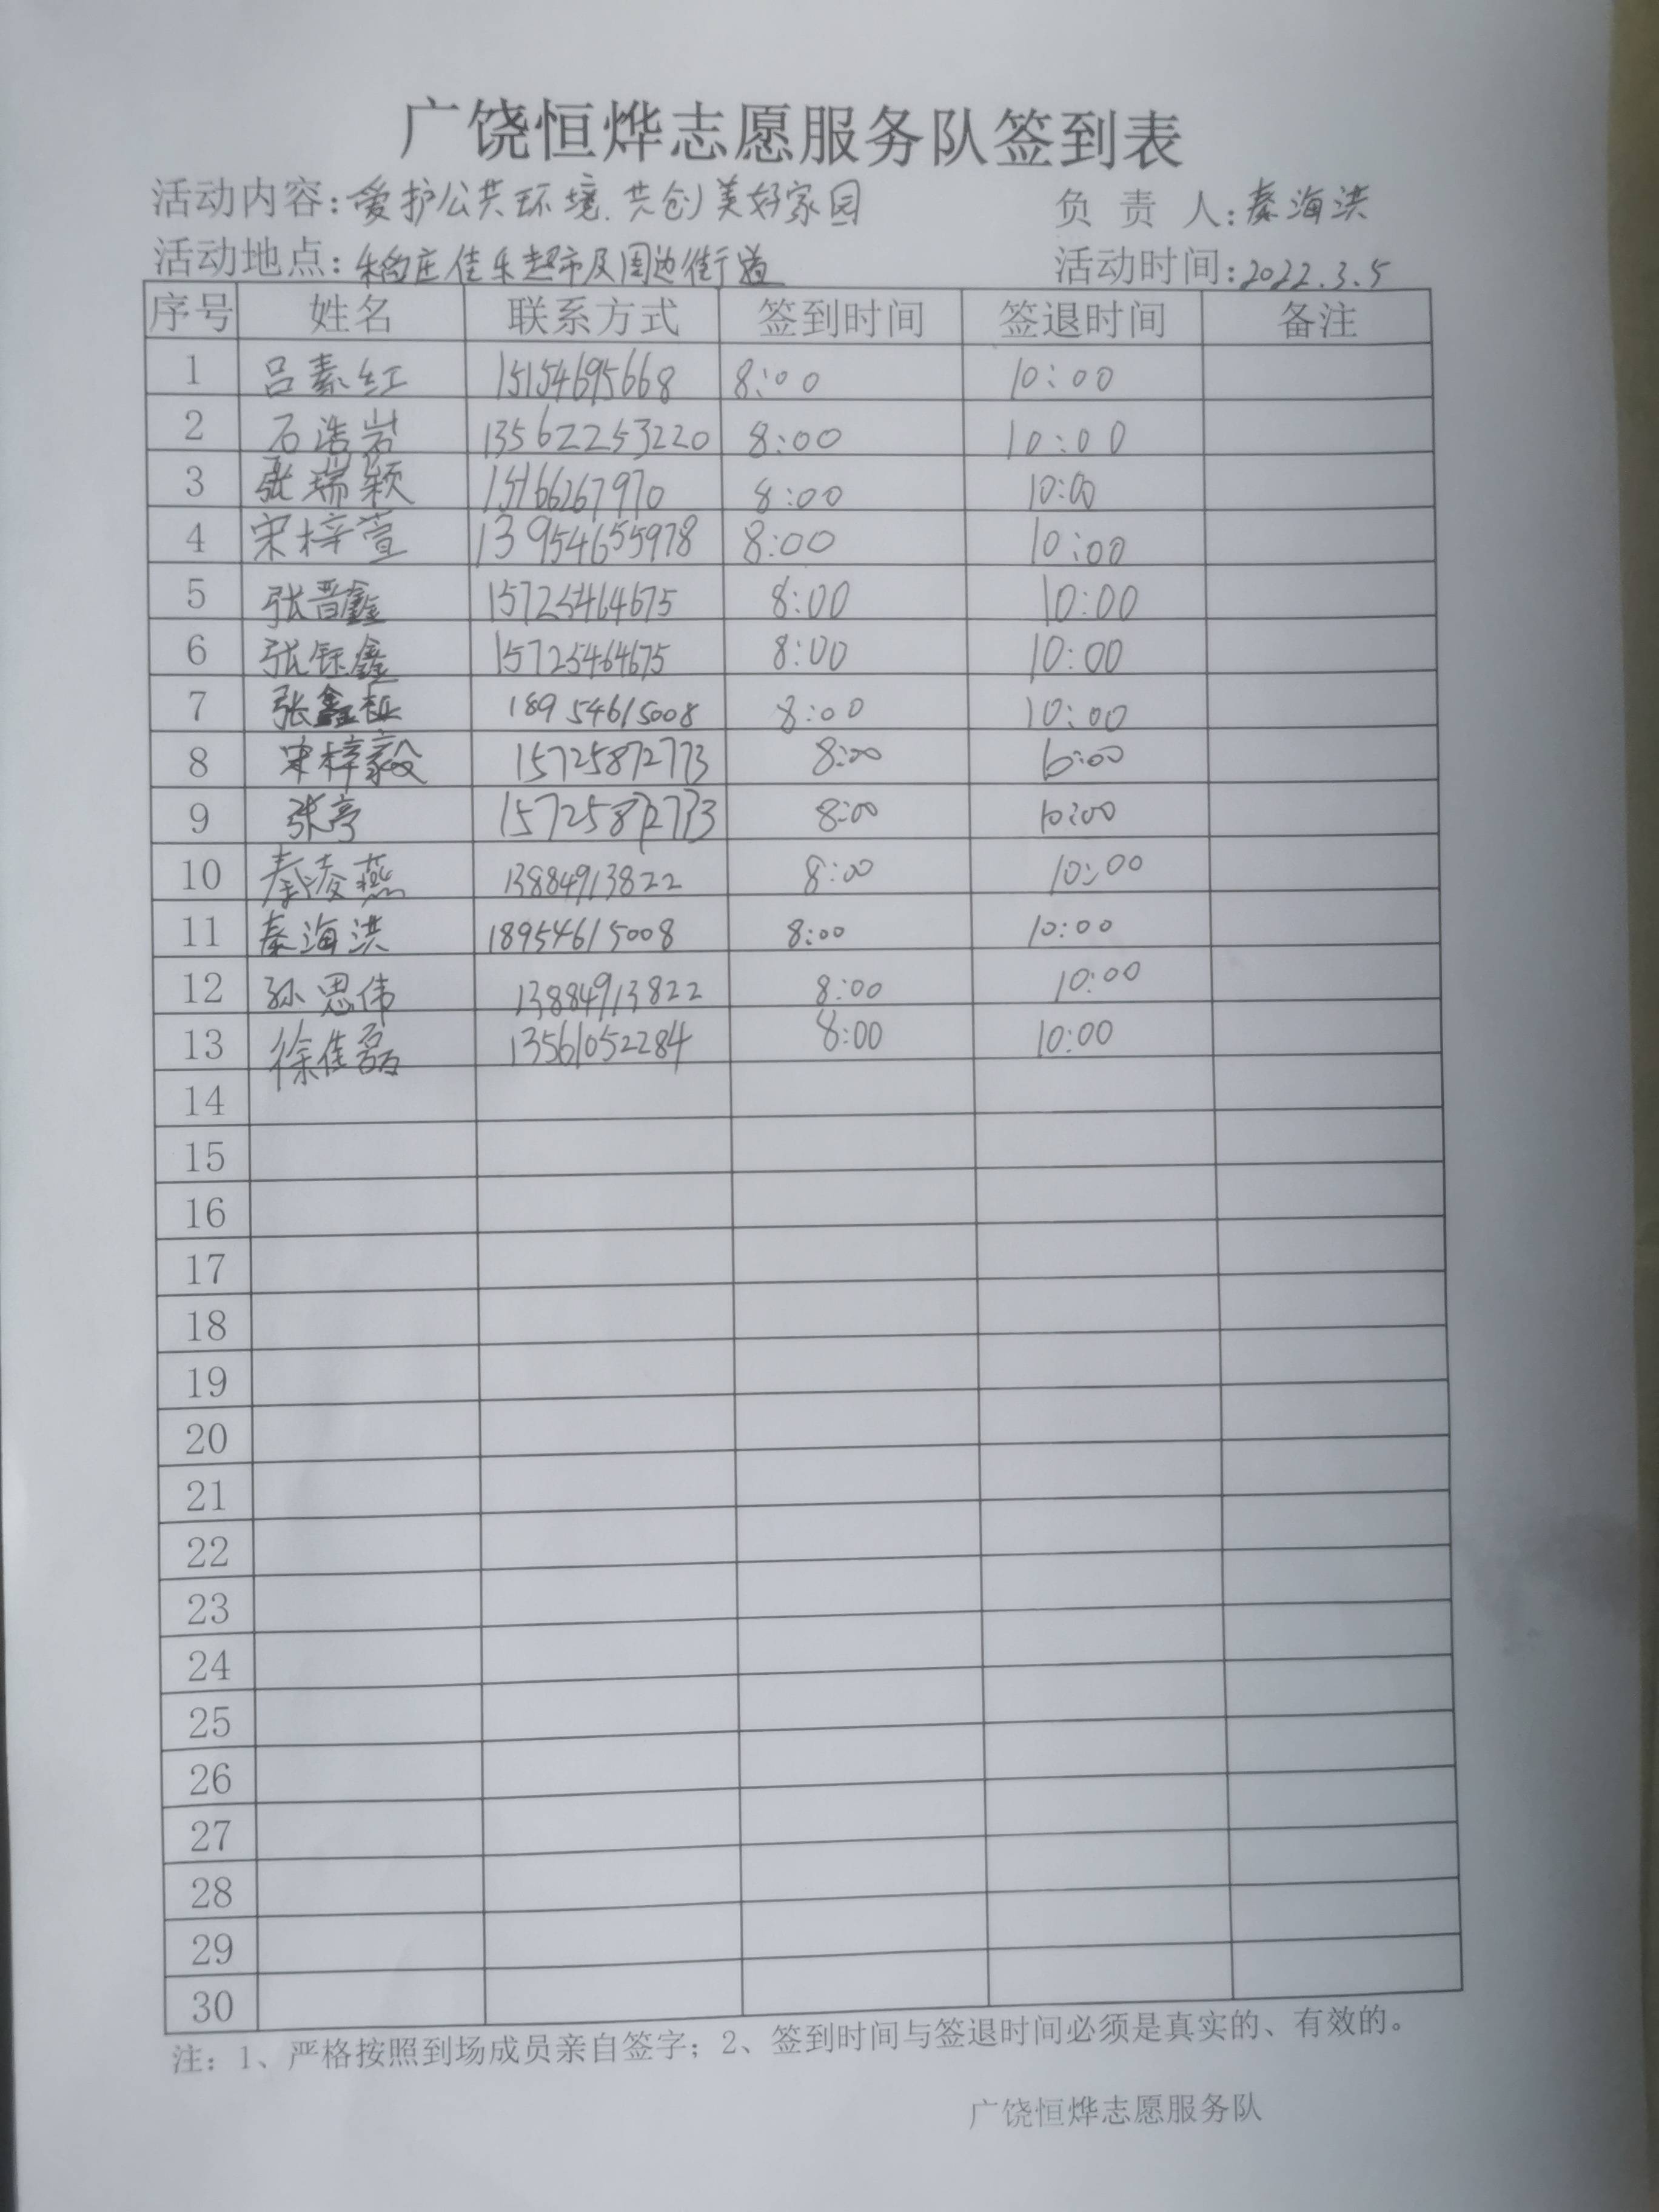 广饶恒烨志愿服务队签到表
活动内容：爱护公共环境.共创美好家园 负责人：秦海洪
活动地点：稻庄佳乐超市及周边街道 活动时间：2022.3.5
序号 姓名 联系方式 签到时间 签退时间 备注
1 吕素红 15154695668 8:00 10:00
2 石浩岩 13562253220 8:00 10:00
3 张瑞颖 15166267970 8:00 10:00
4 宋梓萱 13954655978 8:00 10:00
5 张晋鑫 15725464675 8:00 10:00
6 张钰鑫 15725464675 8:00 10:00
7 张鑫 18954615008 8:00 10:00
8 宋梓毅 15725872773 8:00 10:00
9 张亭 15725872773 8:00 10:00
10 秦凌燕 13884913822 8:00 10:00
11 秦海洪 18954615008 8:00 10:00
12 孙思伟 13884913822 8:00 10:00
13 徐佳磊 13561052284 8:00 10:00
14
15
16
17
18
19
20
21
22
23
24
25
26
27
28
29
30
注：1、严格按照到场成员亲自签字；2、签到时间与签退时间必须是真实的、有效的。
广饶恒烨志愿服务队